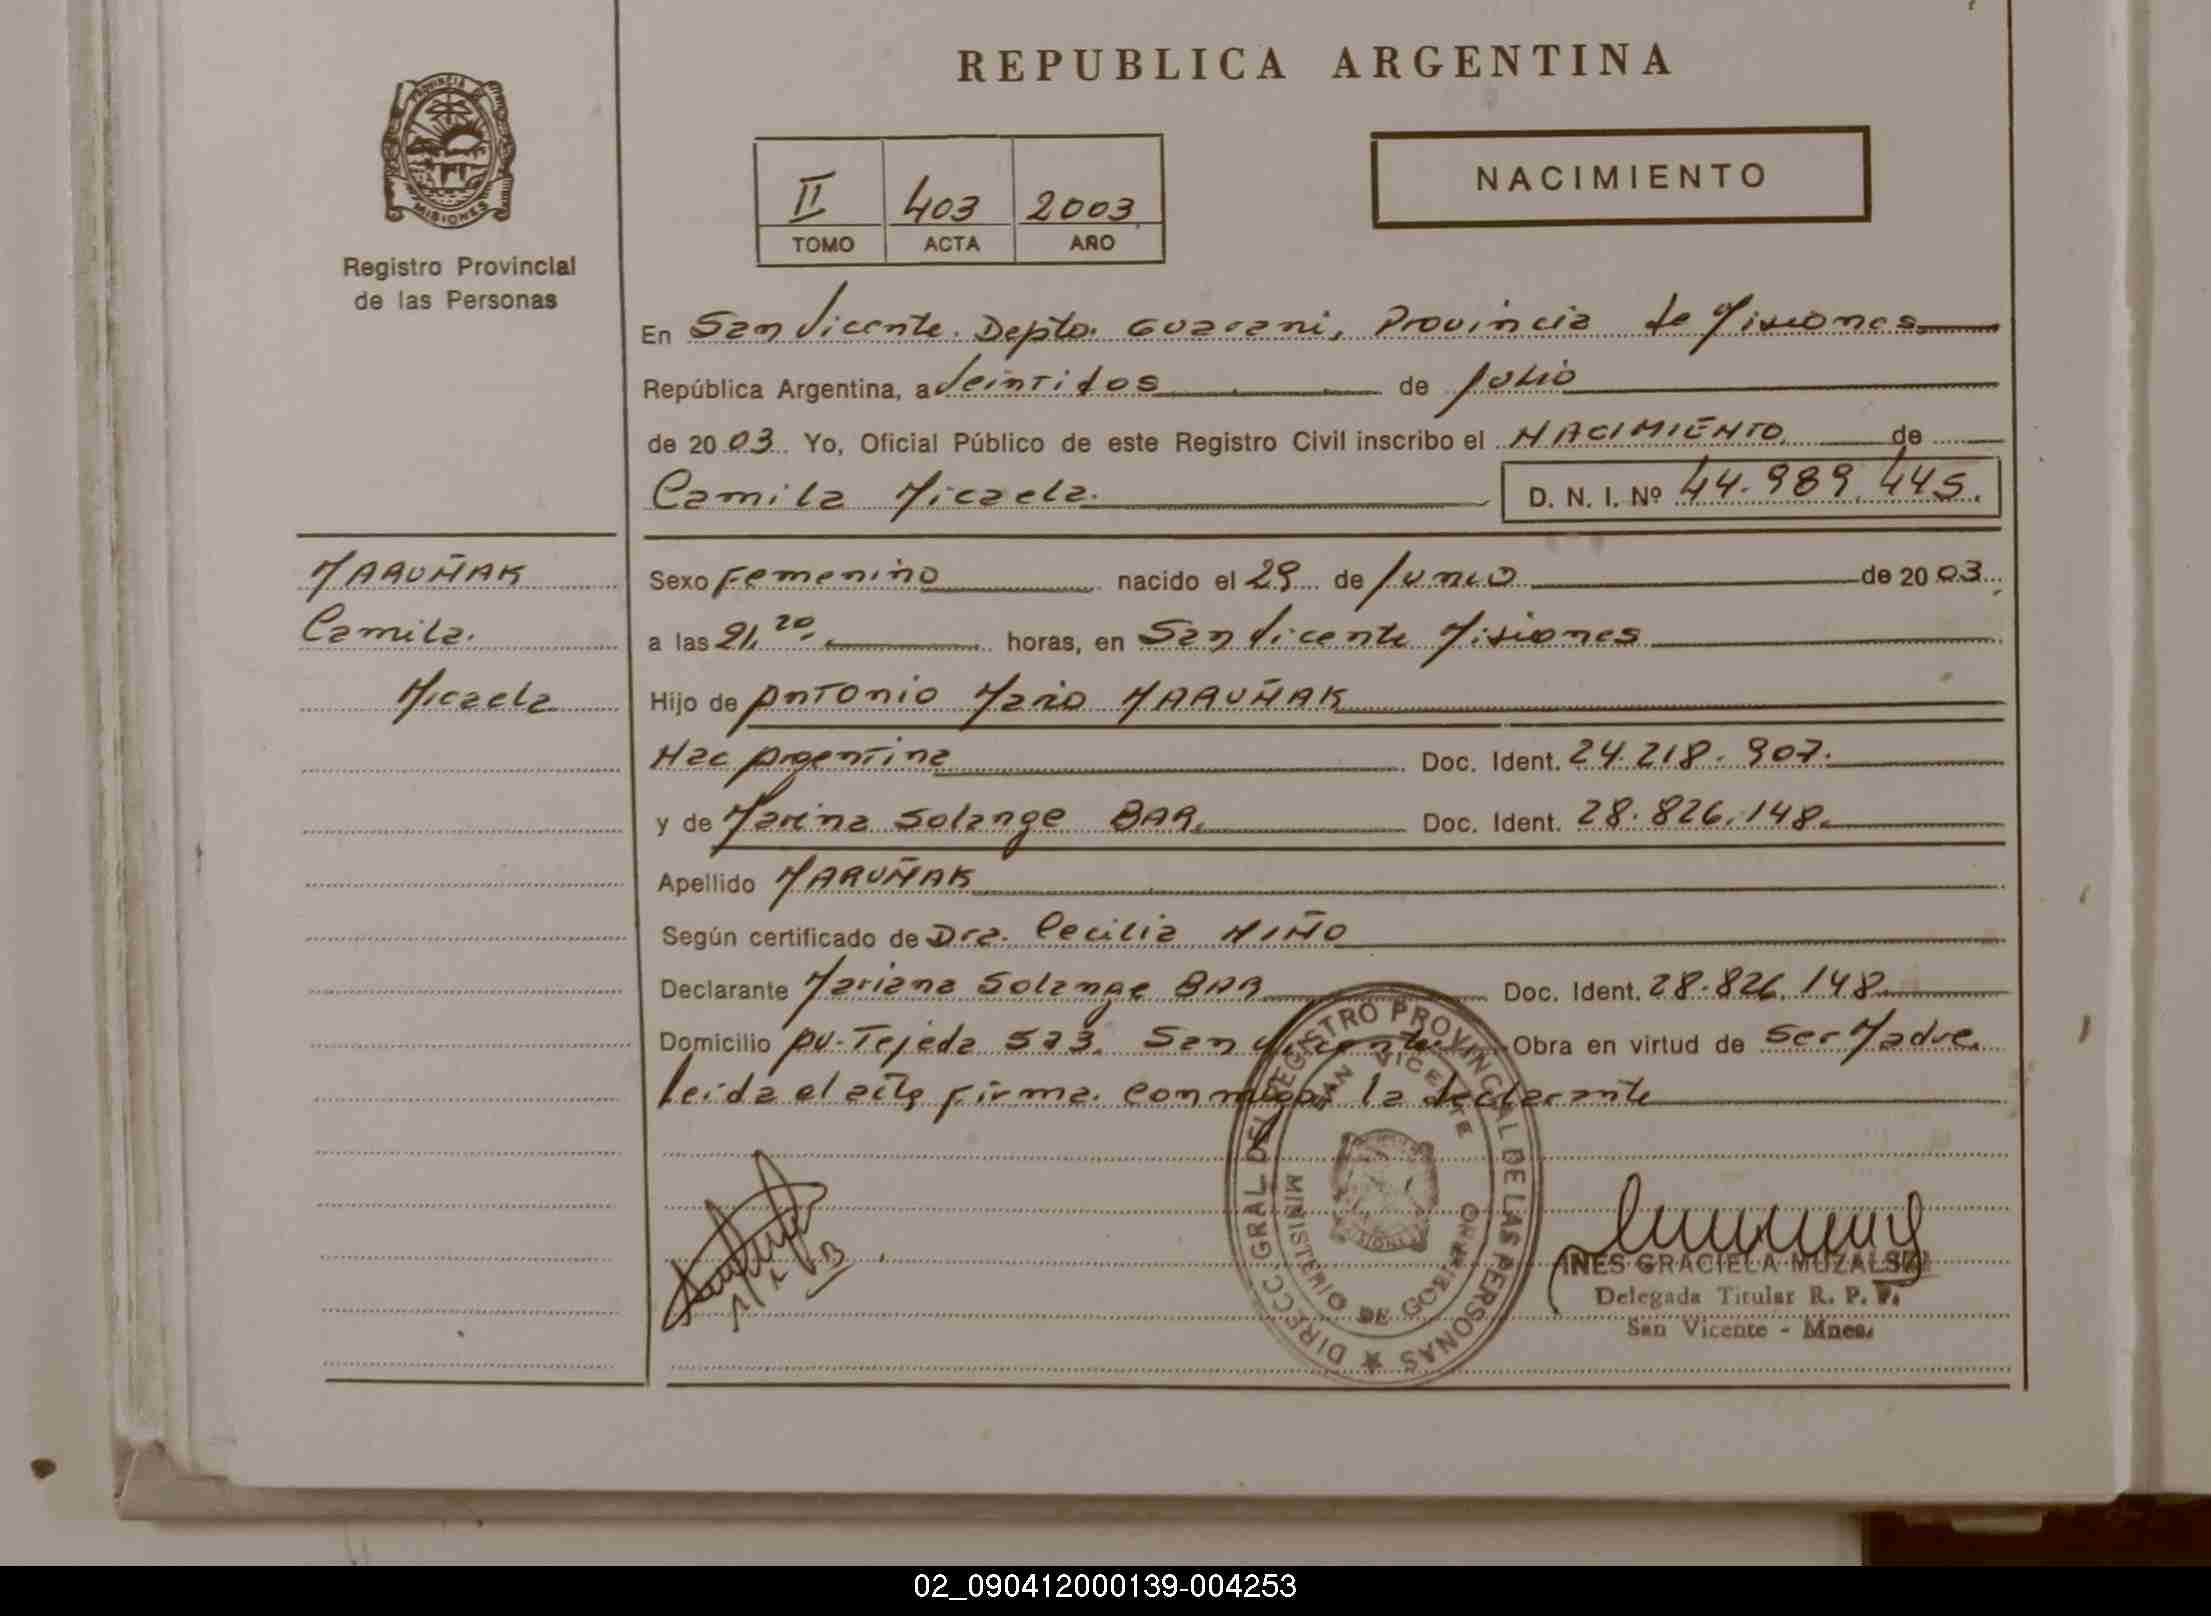 REPUBLICA ARGENTINA
PROVINCIA DE
MISIONES
Registro Provincial
de las Personas
II 403 2003
TOMO ACTA AÑO
NACIMIENTO
En San Vicente. Depto. Guarani, Provincia de Misiones
República Argentina, a Veintidos de Julio
de 2003. Yo, Oficial Público de este Registro Civil inscribo el NACIMIENTO de
Camila Micaela. D. N. I. Nº 44.989.445.
MARUÑAK
Camila.
Micaela
Sexo Femenino nacido el 29 de Junio de 2003.
a las 21,20. horas, en San Vicente Misiones
Hijo de Antonio Mario MARUÑAK
Nac Argentina Doc. Ident. 24.218.907.
y de Marina Solange BAR. Doc. Ident. 28.826.148.
Apellido MARUÑAK
Según certificado de Dra. Cecilia NIÑO
Declarante Mariana Solange BAR Doc. Ident. 28.826.148.
Domicilio Av. Tejeda 573. San Vicente. Obra en virtud de Ser Madre.
Leida el acta firma. conmigo la declarante
DIRECC. GRAL. DEL REGISTRO PROVINCIAL DE LAS PERSONAS
SAN VICENTE
MINISTERIO DE GOBIERNO
MISIONES
INES GRACIELA
Delegada Titular R. P. P.
San Vicente - Mnes.
02_090412000139-004253